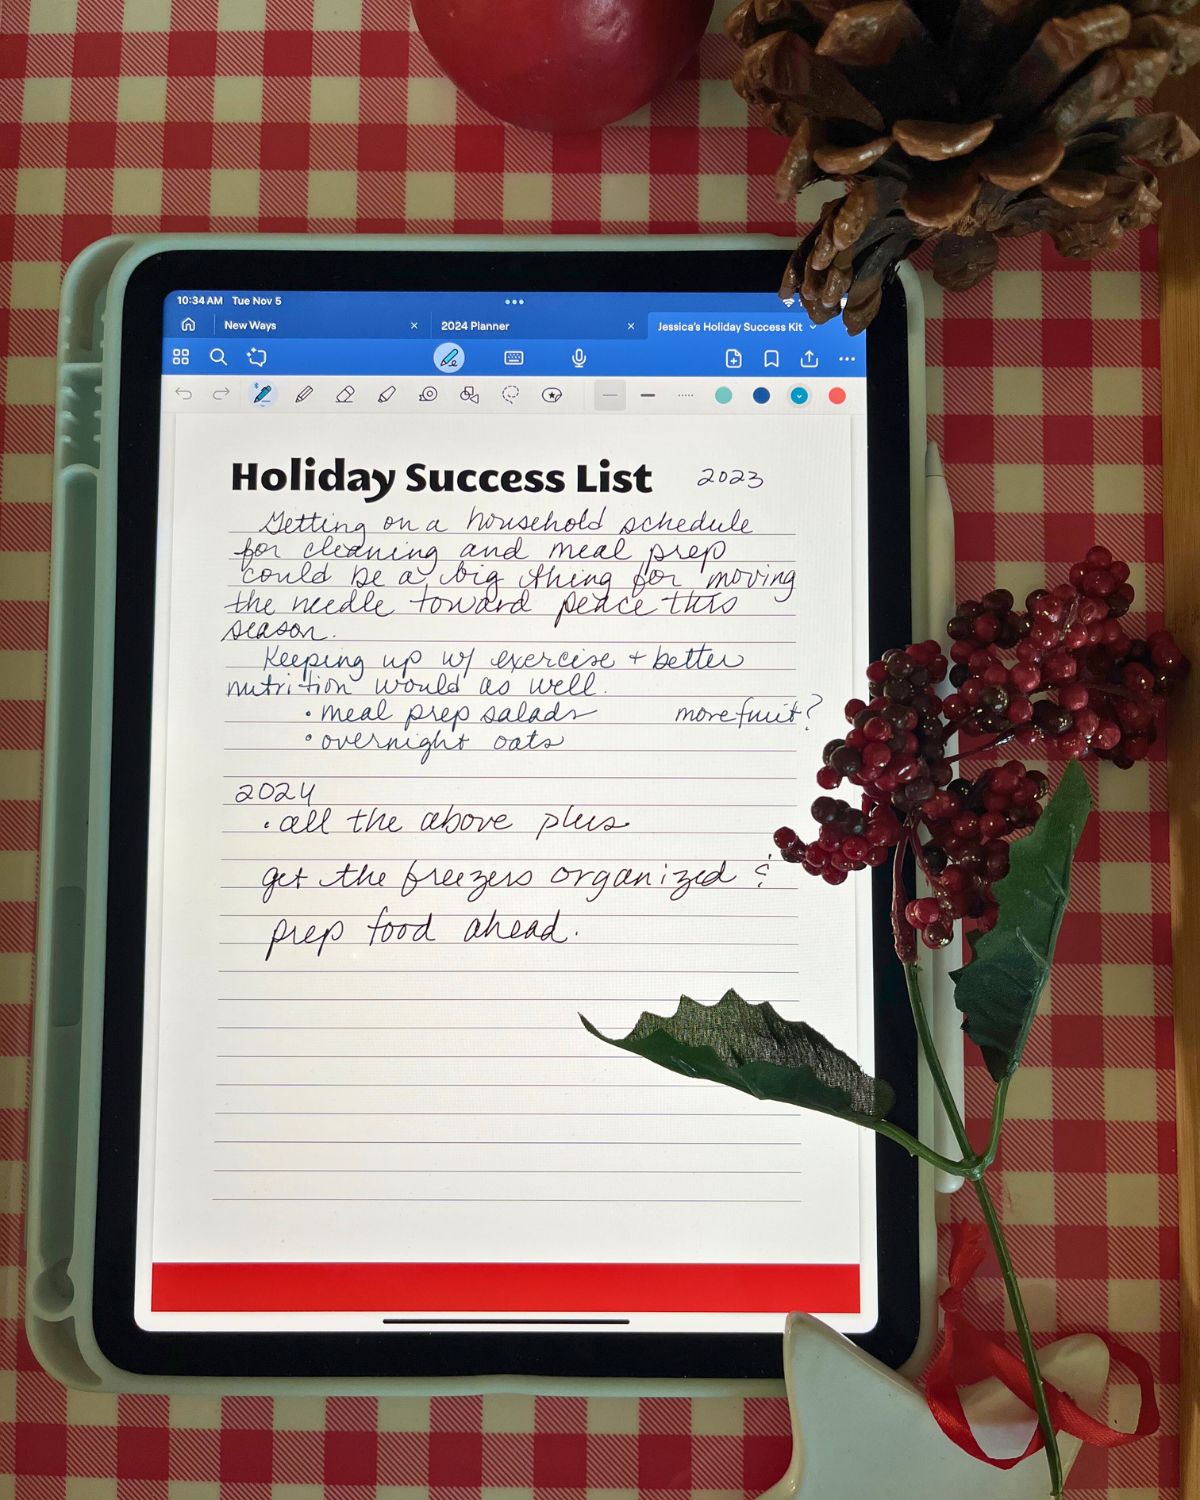 10:34 AM Tue Nov 5
New Ways
2024 Planner
Jessica's Holiday Success Kit
Holiday Success List 2023
Getting on a household schedule
for cleaning and meal prep
could be a big thing for moving
the needle toward peace this
season.
Keeping up w/ exercise + better
nutrition would as well.
• meal prep salads more fruit?
• overnight oats
2024
• all the above plus
get the freezers organized &
prep food ahead.